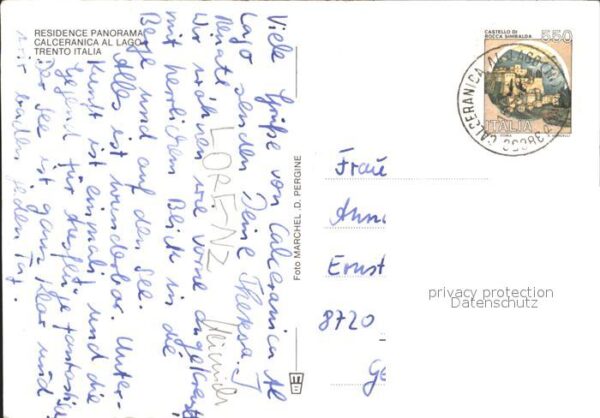 RESIDENCE PANORAMA
CALCERANICA AL LAGO
TRENTO ITALIA
Viele Grüße von Calceranica Al
Lago senden Deine Theresa
Renate LORENZ
Wir wohnen wie vorne angekreuzt
mit herrlichem Blick in die
Berge und auf den See.
Alles ist wunderbar. Unter-
Kunft ist einmalig und die
Gegend für Ausflüge fantastisch
Der See ist ganz klar und
wir baden jeden Tag.
Foto MARCHEL .D. PERGINE
CASTELLO DI
ROCCA SINIBALDA
550
ITALIA
CALCERANICA AL LAGO
38050
Frau
Anna
Ernst
8720
privacy protection
Datenschutz